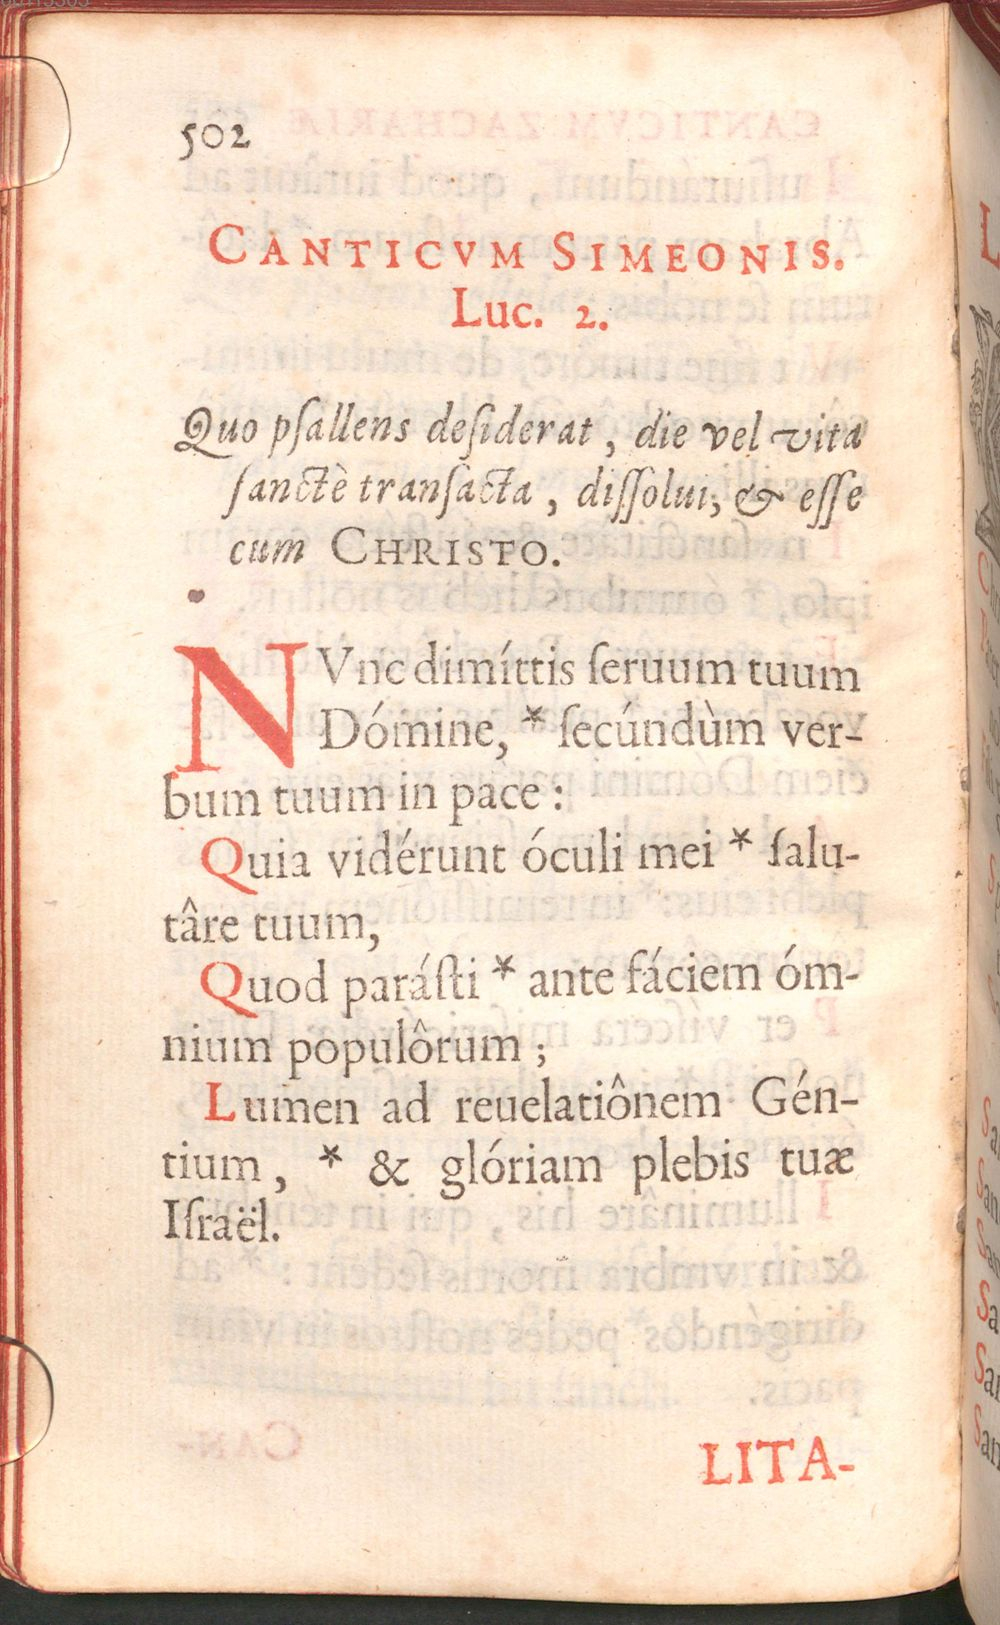 502
CANTICVM SIMEONIS.
Luc. 2.
Quo pſallens deſiderat, die vel vita
ſanctè tranſacta, diſſolui, & eſſe
cum CHRISTO.
NVnc dimíttis ſeruum tuum
Dómine, * ſecúndùm ver-
bum tuum in pace :
Quia vidérunt óculi mei * ſalu-
târe tuum,
Quod paráſti * ante fáciem óm-
nium populôrum ;
Lumen ad reuelatiônem Gén-
tium, * & glóriam plebis tuæ
Iſraël.
LITA-